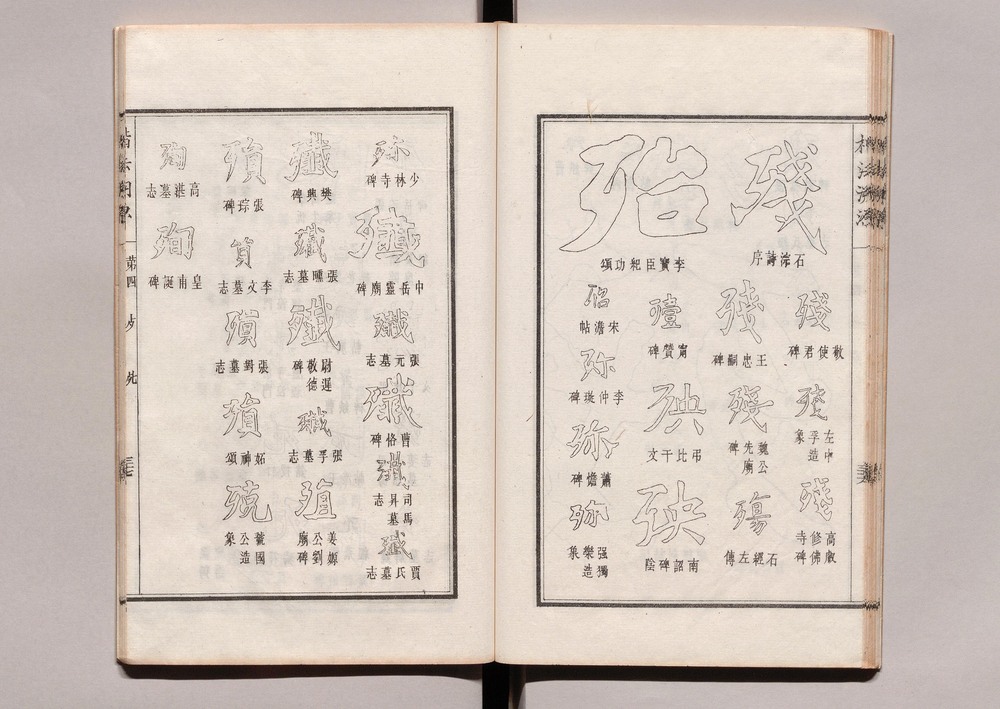 楷法溯源
殘
石淙詩序
殘
敬使君碑
殘
左中孚造象
殘
高叡修佛寺碑
殘
王忠嗣碑
殘
魏公先廟碑
殤
石經左傳
殆
李寶臣紀功頌
殪
甯贊碑
殃
弔比干文
殃
南詔碑陰
殆
宋儋帖
殄
李仲璇碑
殄
蕭憺碑
殄
强獨樂造象
殄
少林寺碑
殲
中岳靈廟碑
殲
張元墓志
殲
曹恪碑
殲
司馬昇墓志
殲
賈氏墓志
殲
樊興碑
殲
張曛墓志
殲
尉遲敬德碑
殲
張孚墓志
殖
姜嫄公劉廟碑
殞
張琮碑
李文墓志
殞
張對墓志
殞
妬神頌
虢國公造象
殉
高湛墓志
殉
皇甫誕碑
楷法溯源
第四
歹
死